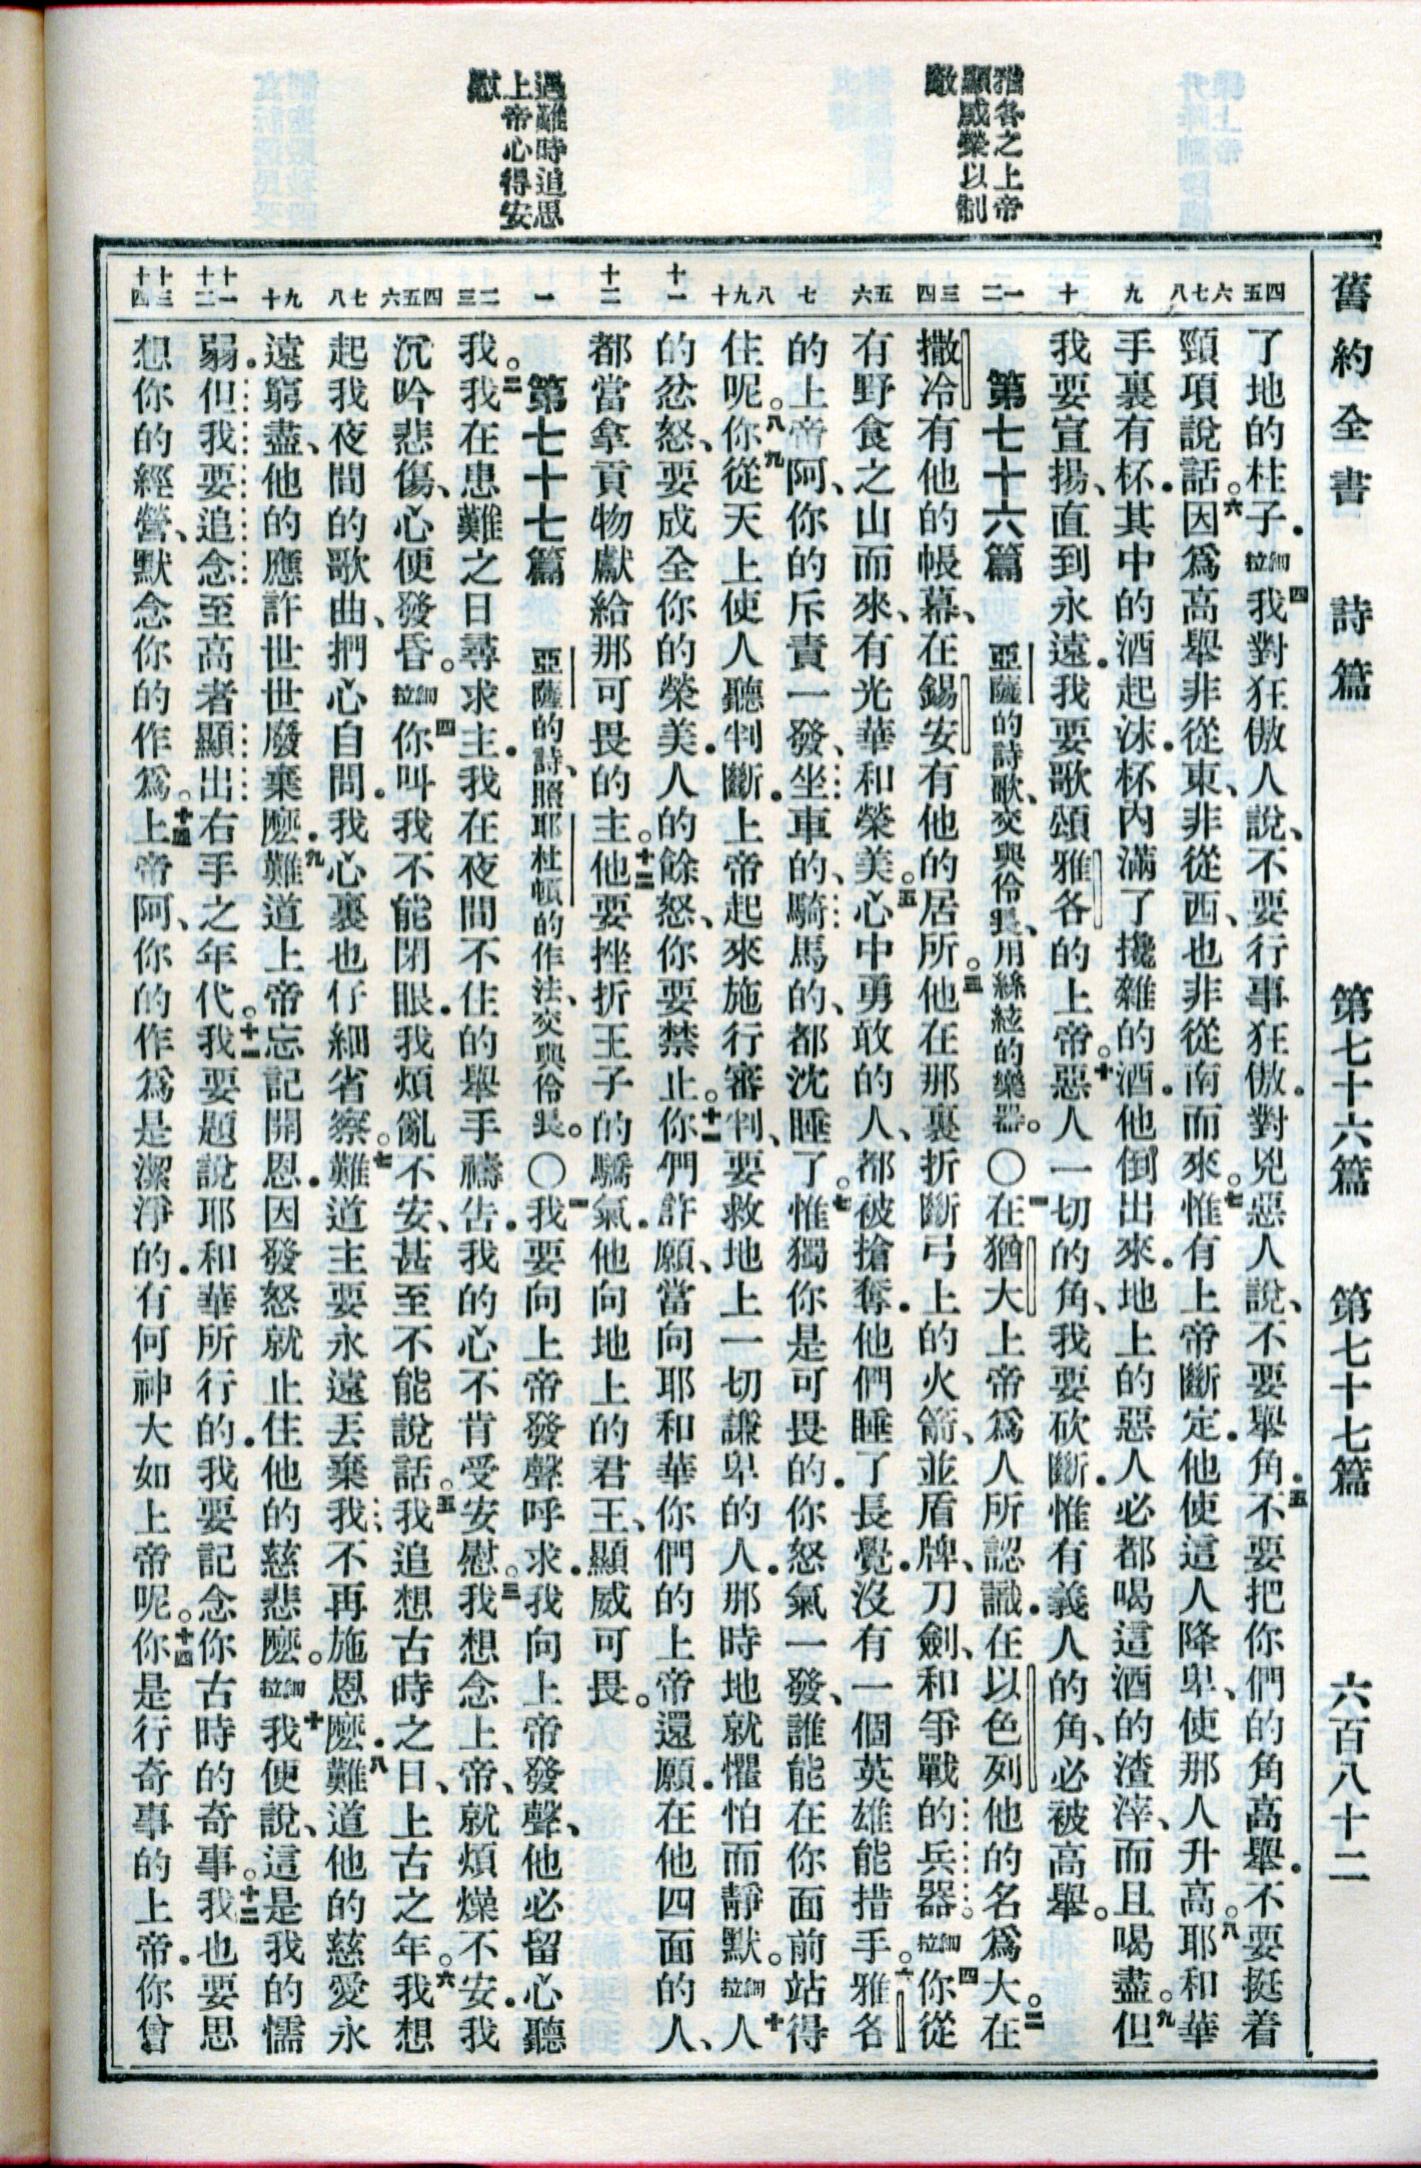 舊約全書　詩篇　第七十六篇　第七十七篇　六百八十二
雅各之上帝
顯威榮以制
敵
遇難時追思
上帝心得安
慰
四五
六七八
九
十
一二
三四
五六
七
八九十
十一
十二
一
二三
四五六
七八
九十
十一十二
十三十四
了地的柱子．細拉四我對狂傲人說、不要行事狂傲．對兇惡人說、不要舉角．五不要把你們的角高舉．不要挺着
頸項說話。六因爲高舉非從東、非從西、也非從南而來。七惟有上帝斷定．他使這人降卑、使那人升高。八耶和華
手裏有杯．其中的酒起沫．杯內滿了攙雜的酒．他倒出來．地上的惡人必都喝這酒的渣滓、而且喝盡。九但
我要宣揚、直到永遠．我要歌頌雅各的上帝。十惡人一切的角、我要砍斷．惟有義人的角、必被高舉。
第七十六篇　亞薩的詩歌、交與伶長、用絲絃的樂器。〇一在猶大上帝爲人所認識．在以色列他的名爲大。二在
撒冷有他的帳幕、在錫安有他的居所。三他在那裏折斷弓上的火箭、並盾牌、刀劍、和爭戰的兵器。細拉四你從
有野食之山而來、有光華和榮美。五心中勇敢的人、都被搶奪．他們睡了長覺．沒有一個英雄能措手。六雅各
的上帝阿、你的斥責一發、坐車的、騎馬的、都沈睡了。七惟獨你是可畏的．你怒氣一發、誰能在你面前站得
住呢。八你從九天上使人聽判斷．上帝起來施行審判、要救地上一切謙卑的人．那時地就懼怕而靜默。細拉十人
的忿怒、要成全你的榮美．人的餘怒、你要禁止。十一你們許願、當向耶和華你們的上帝還願．在他四面的人、
都當拿貢物獻給那可畏的主。十二他要挫折王子的驕氣．他向地上的君王、顯威可畏。
第七十七篇　亞薩的詩、照耶杜頓的作法、交與伶長。〇一我要向上帝發聲呼求．我向上帝發聲、他必留心聽
我。二我在患難之日尋求主．我在夜間不住的舉手禱告．我的心不肯受安慰。三我想念上帝、就煩燥不安．我
沉吟悲傷、心便發昏。細拉四你叫我不能閉眼．我煩亂不安、甚至不能說話。五我追想古時之日、上古之年。六我想
起我夜間的歌曲、捫心自問．我心裏也仔細省察。七難道主要永遠丟棄我、不再施恩麼．八難道他的慈愛永
遠窮盡、他的應許世世廢棄麼．九難道上帝忘記開恩．因發怒就止住他的慈悲麼。細拉十我便說、這是我的懦
弱．但我要追念至高者顯出右手之年代。十一我要題說耶和華所行的．我要記念你古時的奇事。十二我也要思
想你的經營、默念你的作爲。十三上帝阿、你的作爲是潔淨的．有何神大如上帝呢。十四你是行奇事的上帝．你曾